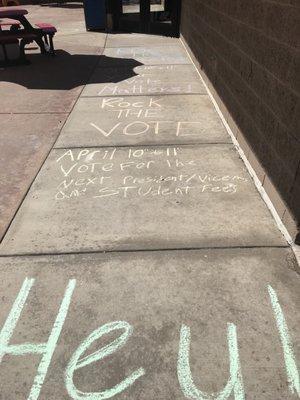 Vote
Matters!
Rock
THE
VOTE
April 10&11
Vote For the
Next President/Vice
and STUdent Fees
Hey!